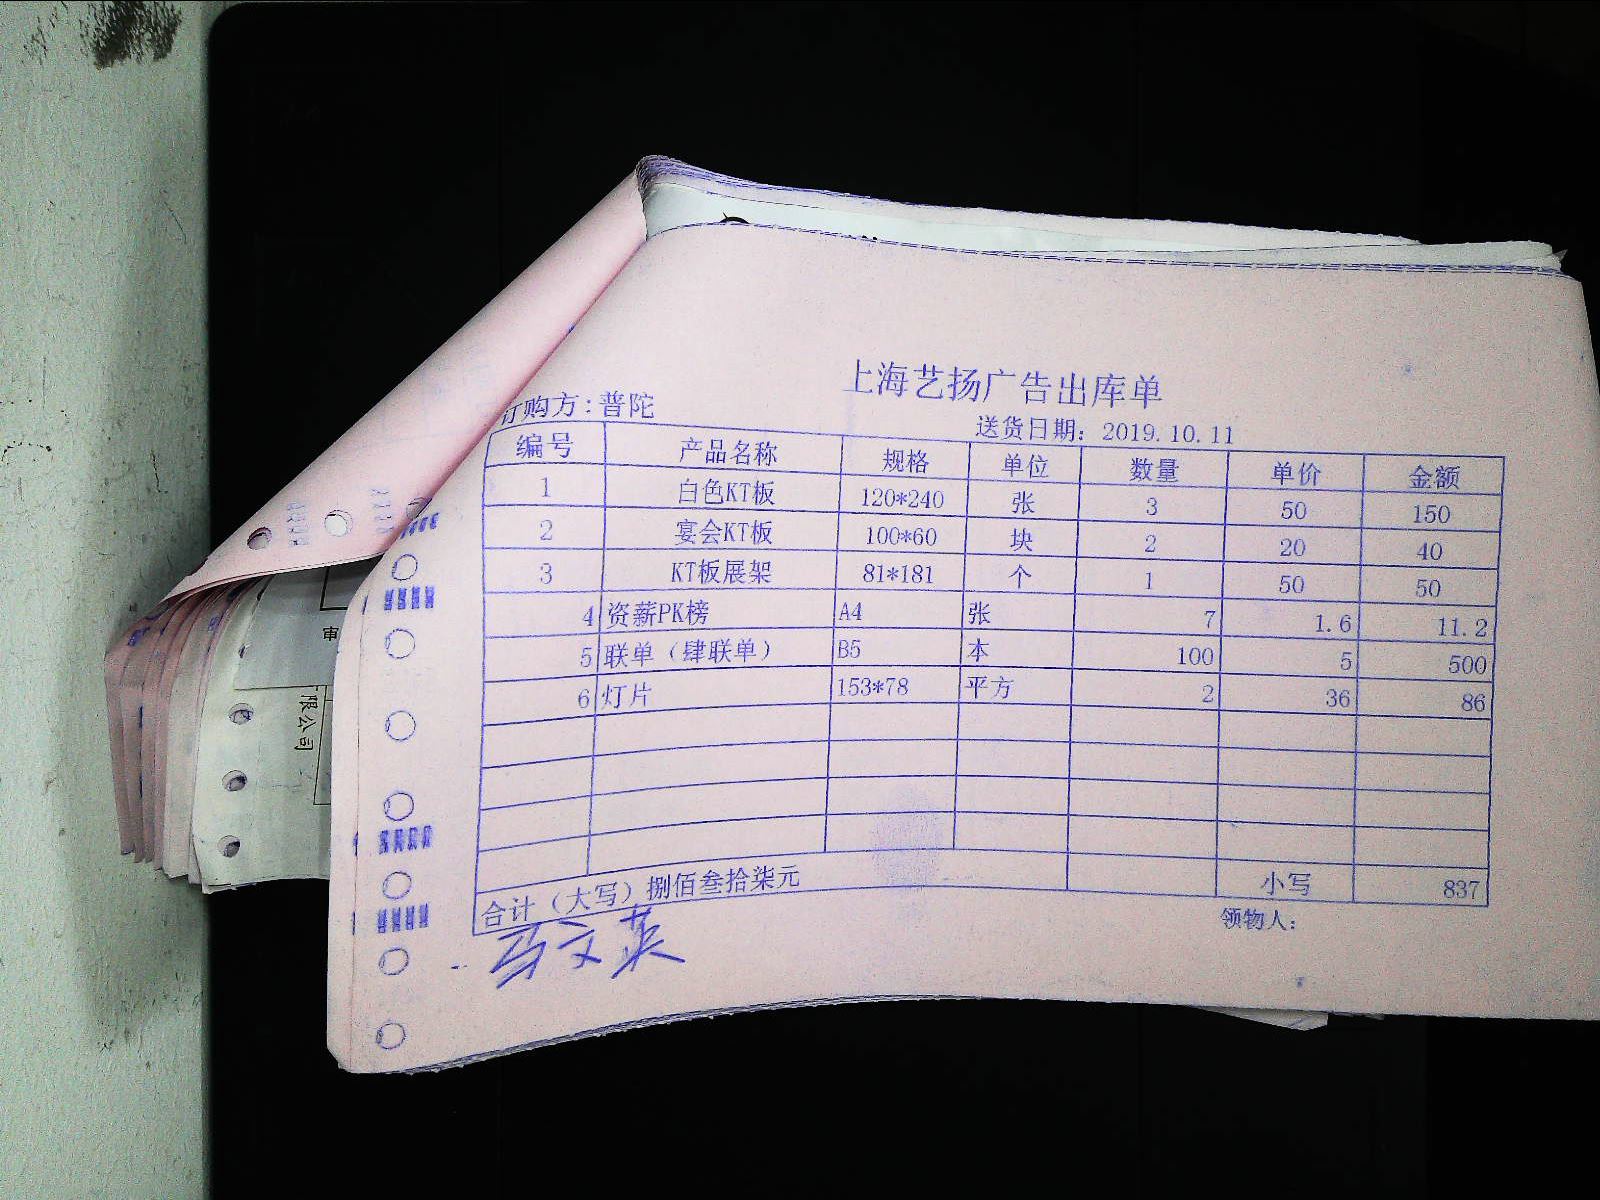 上海艺扬广告出库单
订购方:普陀
送货日期: 2019.10.11
编号 产品名称 规格 单位 数量 单价 金额
1 白色KT板 120*240 张 3 50 150
2 宴会KT板 100*60 块 2 20 40
3 KT板展架 81*181 个 1 50 50
4 资薪PK榜 A4 张 7 1.6 11.2
5 联单（肆联单） B5 本 100 5 500
6 灯片 153*78 平方 2 36 86
合计（大写）捌佰叁拾柒元 小写 837
领物人:
马文英
审
限公司